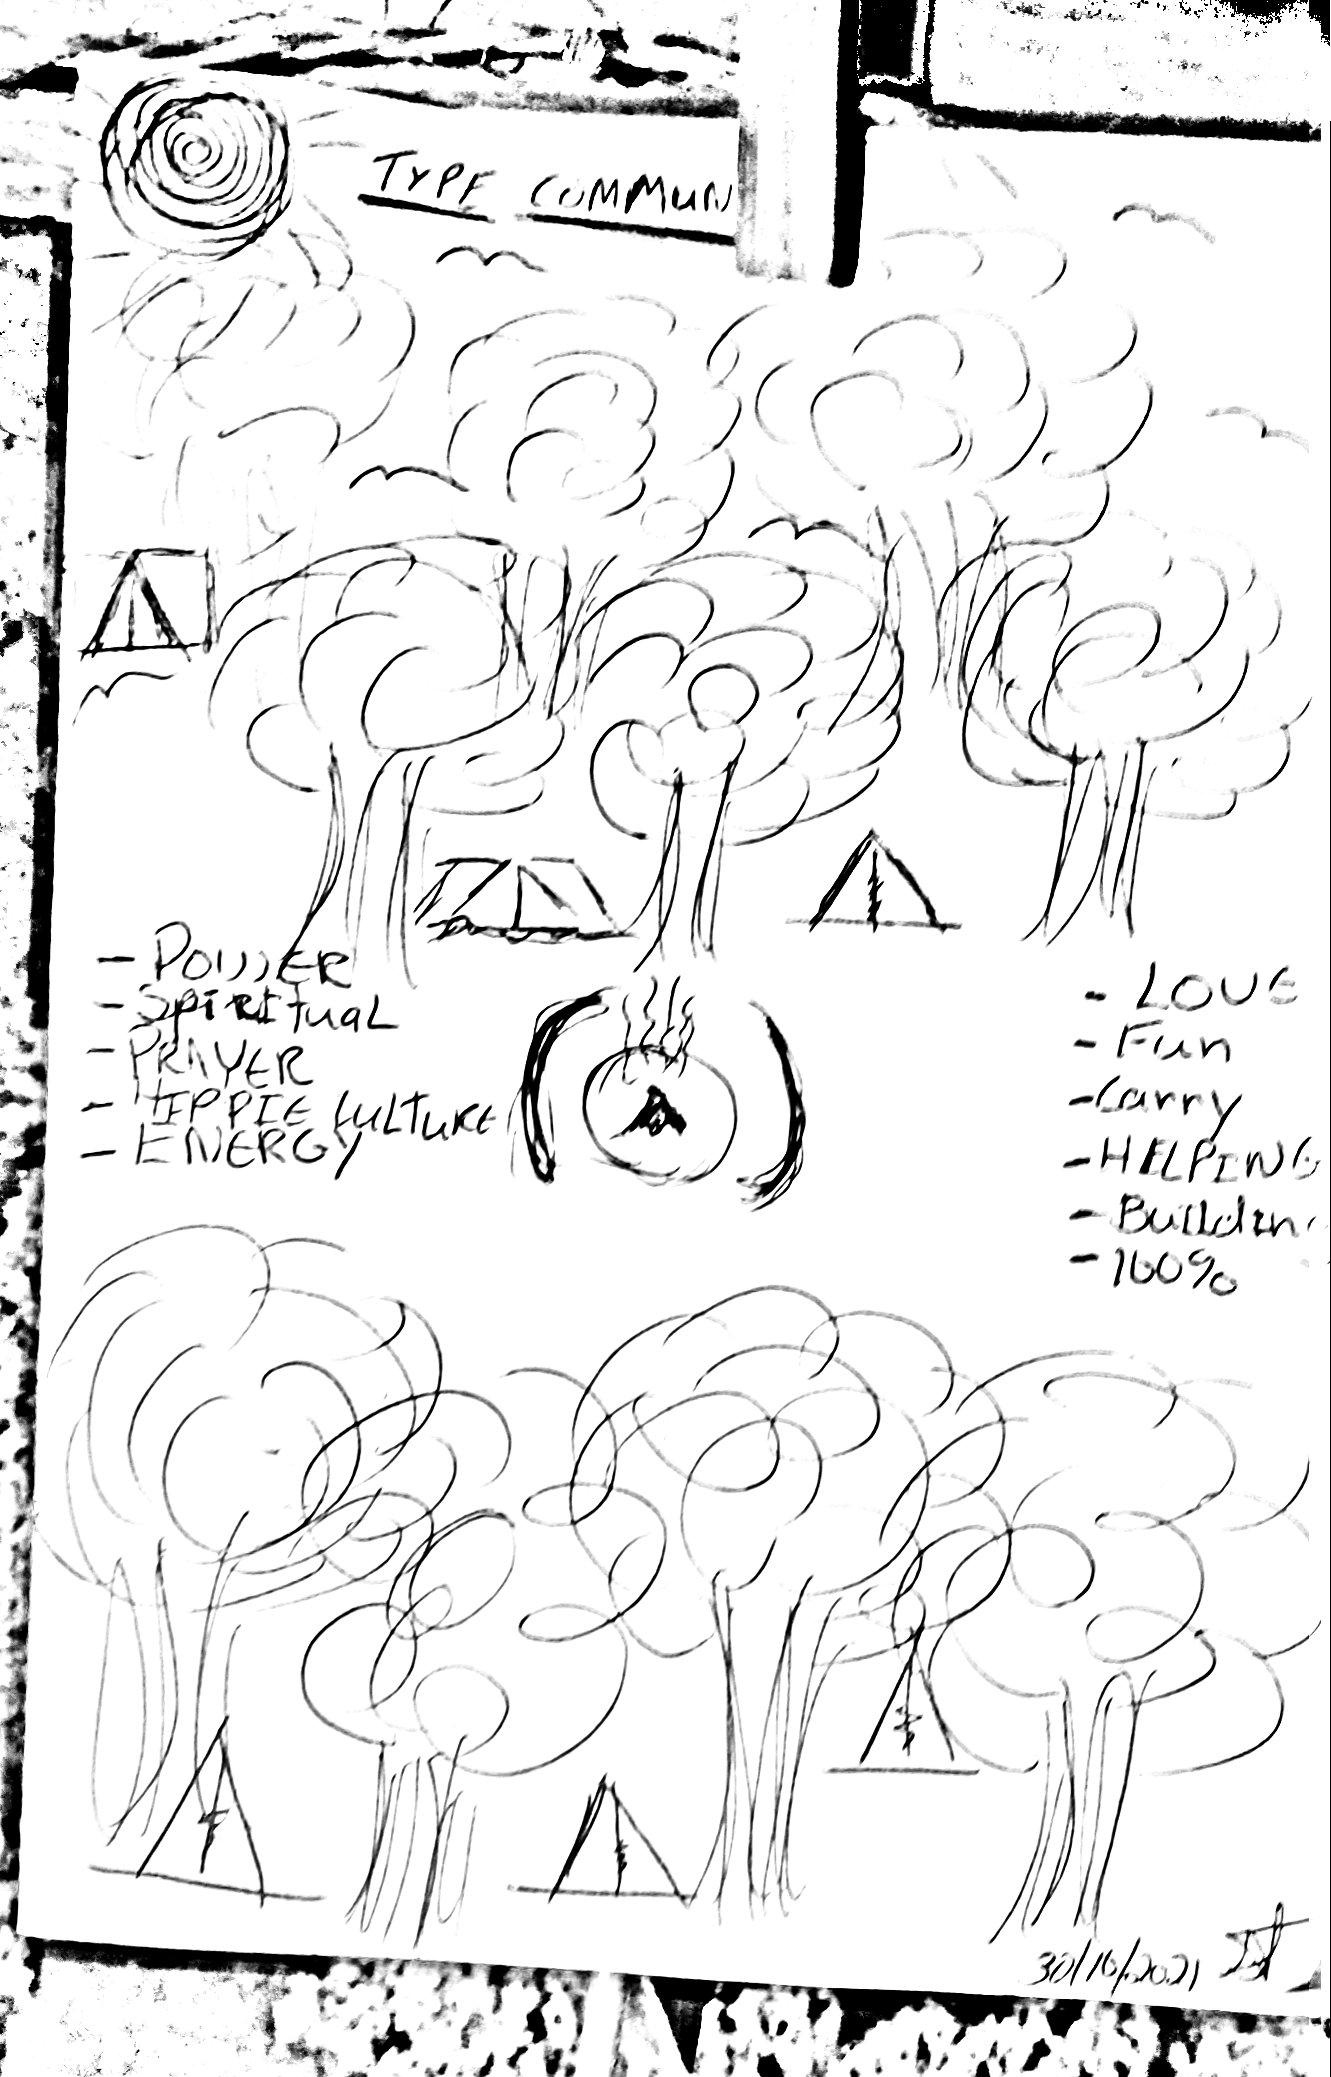 TYPE COMMUN
- POWER
- Spiritual
- PRAYER
- HIPPIE CULTURE
- ENERGY
- LOVE
- Fun
- Carry
- HELPING
- Buildin
- 100%
30/10/2021